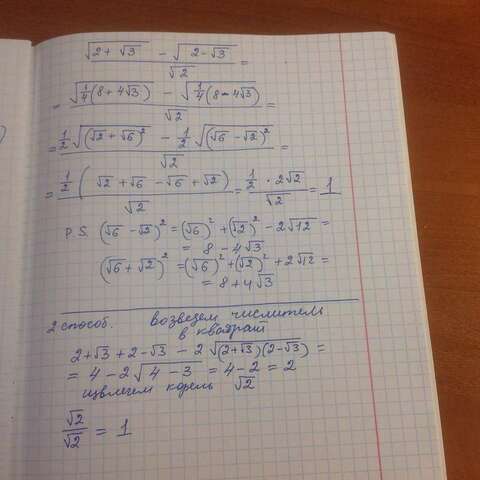 (√(2+√3) − √(2−√3))/√2 =
= (√(1/4(8+4√3)) − √(1/4(8−4√3)))/√2 =
= (1/2√((√2+√6)²) − 1/2√((√6−√2)²))/√2 =
= (1/2(√2+√6−√6+√2))/√2 = (1/2·2√2)/√2 = 1
P.S. (√6−√2)² = (√6)²+(√2)²−2√12 =
= 8−4√3
(√6+√2)² = (√6)²+(√2)²+2√12 =
= 8+4√3
2 способ. возведем числитель
в квадрат
2+√3+2−√3 − 2√((2+√3)(2−√3)) =
= 4−2√(4−3) = 4−2 = 2
извлечем корень √2
√2/√2 = 1